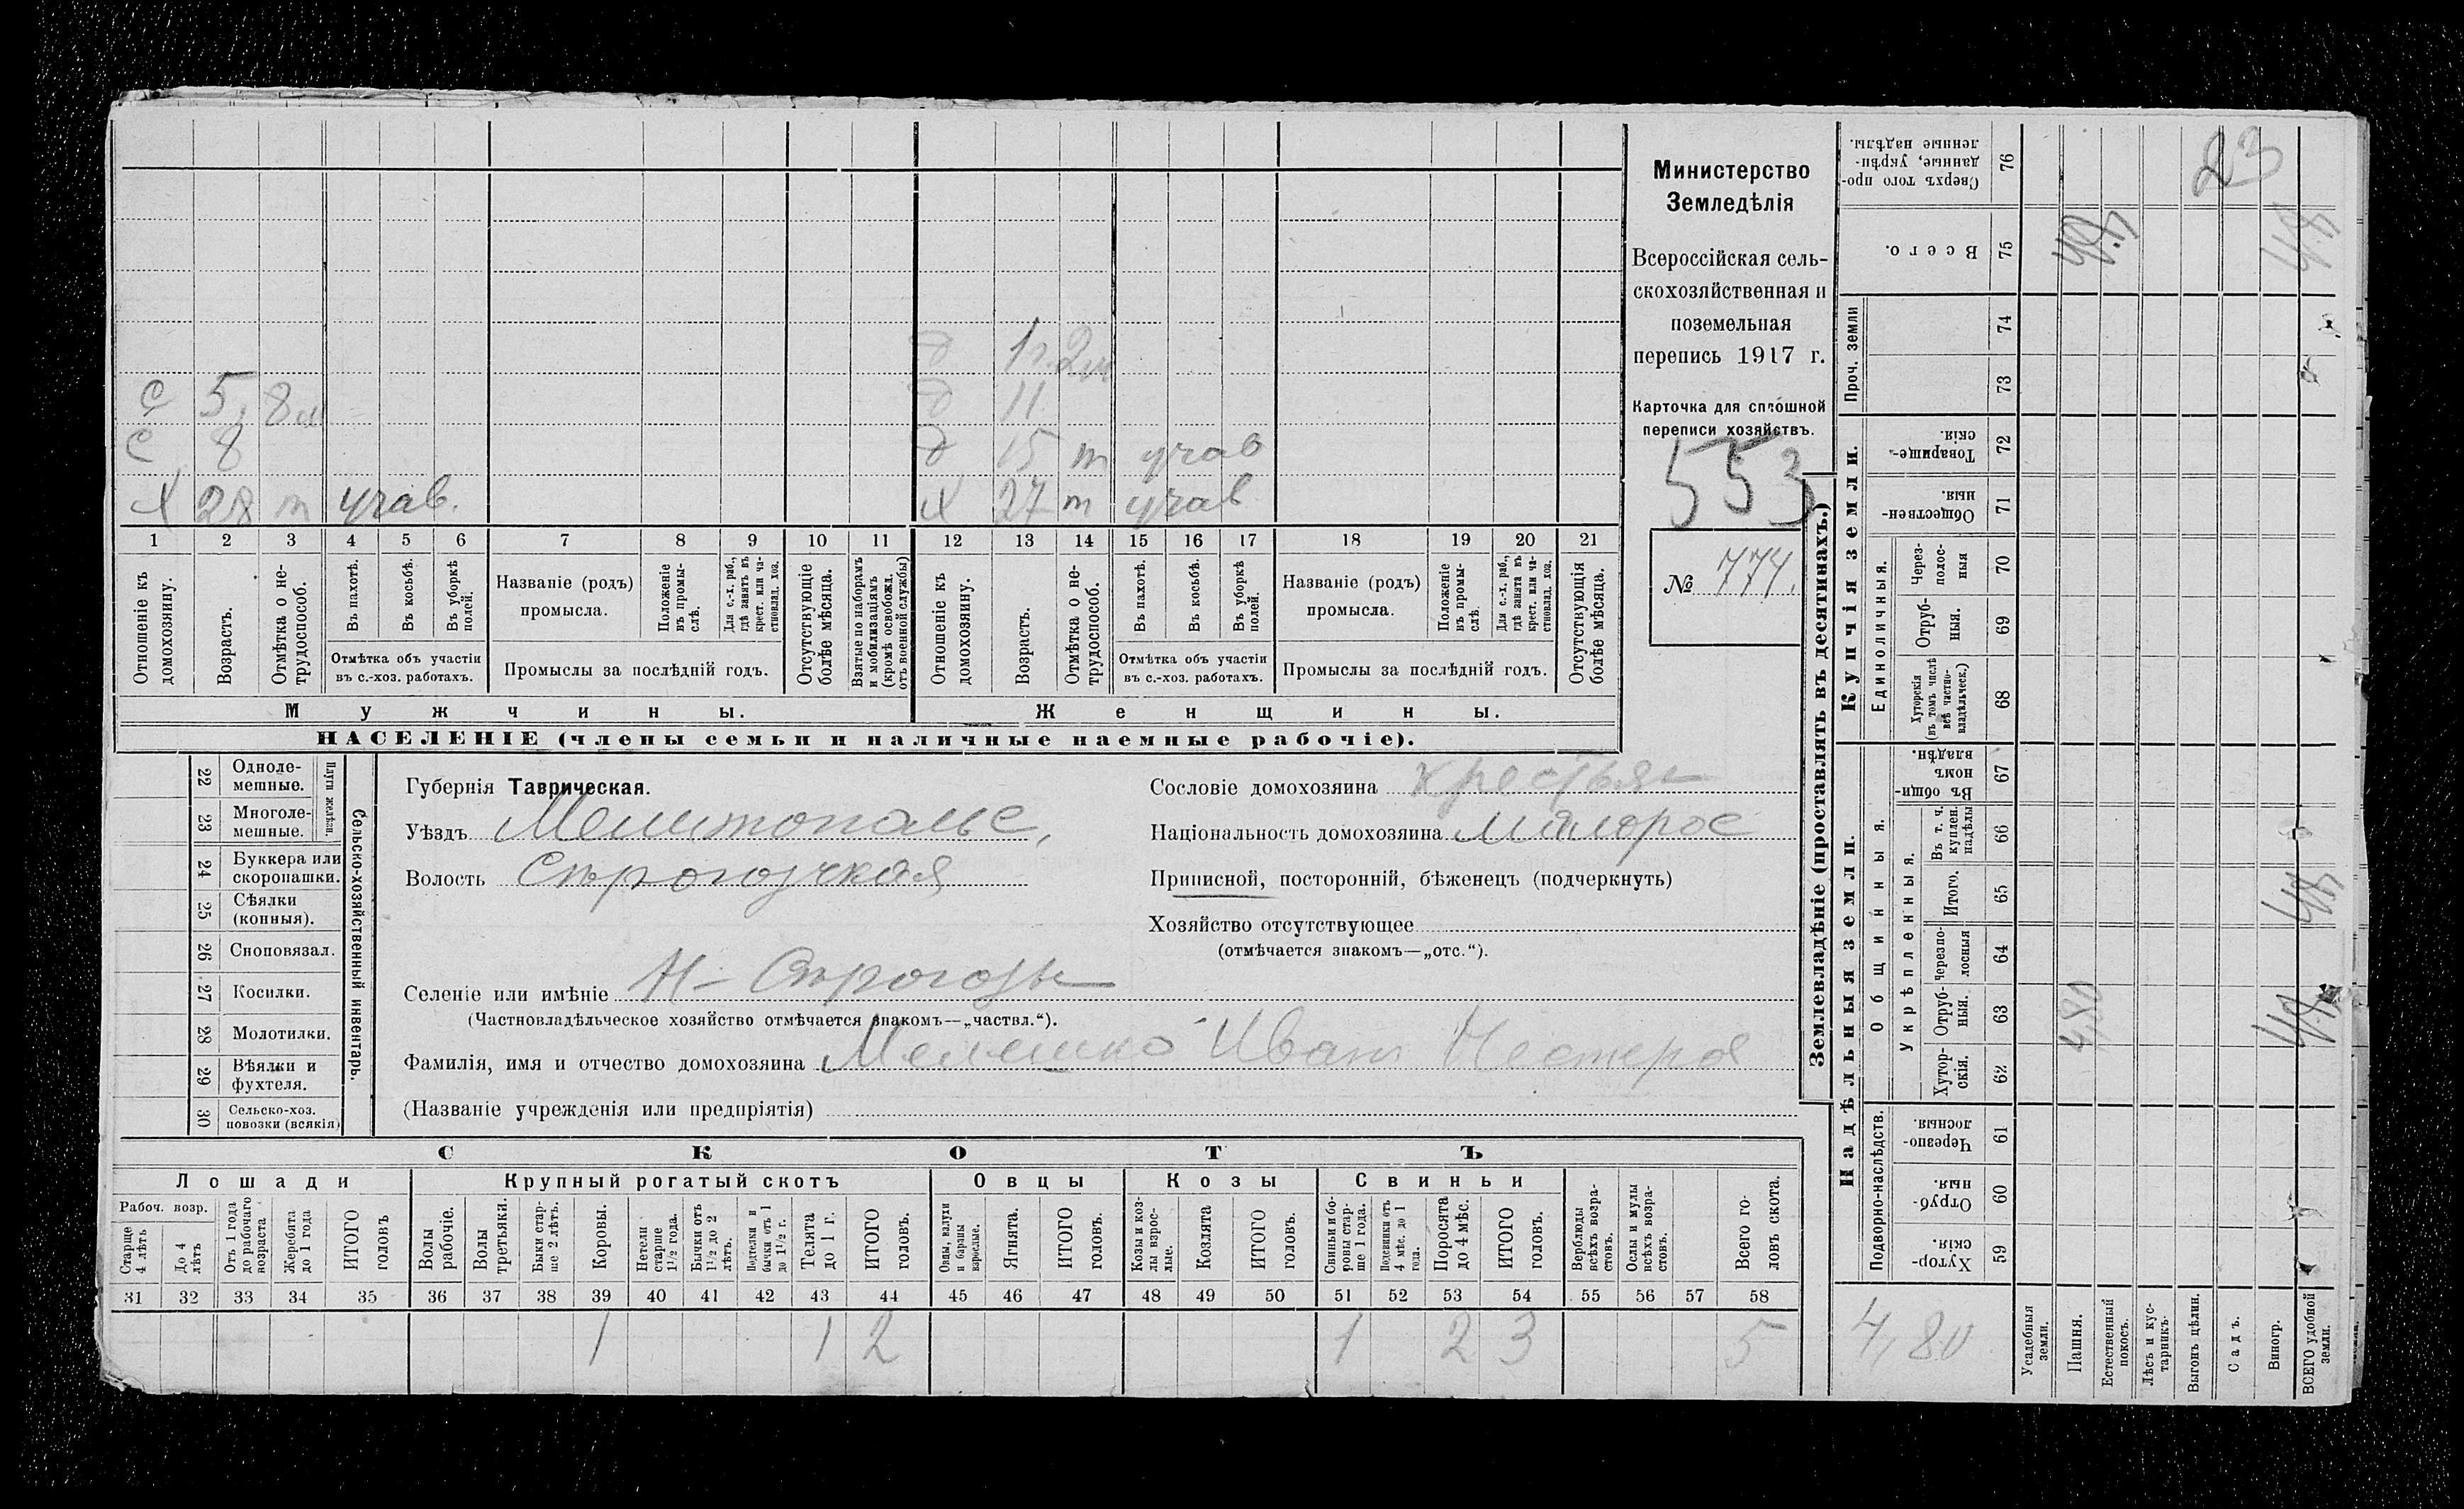 Министерство
Земледѣлія
Всероссійская сель-
скохозяйственная и
поземельная
перепись 1917 г.
Карточка для сплошной
переписи хозяйствъ.
553
№ 774.
д 1 г. 2 м
с 5, 8 м
д 11
с 8
д 15 т учав
х 28 т учав.
х 27 т учав
1 2 3 4 5 6 7 8 9 10 11 12 13 14 15 16 17 18 19 20 21
Отношеніе къ домохозяину.
Возрастъ.
Отмѣтка о не-трудоспособ.
Въ пахотѣ.
Въ косьбѣ.
Въ уборкѣ полей.
Отмѣтка объ участіи
въ с.-хоз. работахъ.
Названіе (родъ)
промысла.
Положеніе въ промы-слѣ.
Для с.-х. раб., гдѣ занятъ въ крест. или ча-стновлад. хоз.
Промыслы за послѣдній годъ.
Отсутствующіе болѣе мѣсяца.
Взятые по наборамъ и мобилизаціямъ (кромѣ освобожд. отъ военной службы)
Отношеніе къ домохозяину.
Возрастъ.
Отмѣтка о не-трудоспособ.
Въ пахотѣ.
Въ косьбѣ.
Въ уборкѣ полей.
Отмѣтка объ участіи
въ с.-хоз. работахъ.
Названіе (родъ)
промысла.
Положеніе въ промы-слѣ.
Для с.-х. раб., гдѣ занята въ крест. или ча-стновлад. хоз.
Промыслы за послѣдній годъ.
Отсутствующія болѣе мѣсяца.
Мужчины.
Женщины.
НАСЕЛЕНІЕ (члены семьи и наличные наемные рабочіе).
22 Одноле-мешные.
23 Многоле-мешные.
Плуги желѣзн.
24 Буккера или скоропашки.
25 Сѣялки (конныя).
26 Сноповязал.
27 Косилки.
28 Молотилки.
29 Вѣялки и фухтеля.
30 Сельско-хоз. повозки (всякія)
Сельско-хозяйственный инвентарь.
Губернія Таврическая.
Уѣздъ Мелитопольс.
Волость Строгозская
Селеніе или имѣніе Н-Строгозы
(Частновладѣльческое хозяйство отмѣчается знакомъ—„частвл.“).
Фамилія, имя и отчество домохозяина Мелешко Иванъ Нестеров
(Названіе учрежденія или предпріятія)
Сословіе домохозяина крестьян
Національность домохозяина Малорос
Приписной, посторонній, бѣженецъ (подчеркнуть)
Хозяйство отсутствующее
(отмѣчается знакомъ—„отс.“).
СКОТЪ
Лошади
Крупный рогатый скотъ
Овцы
Козы
Свиньи
Рабоч. возр.
Старше 4 лѣтъ
До 4 лѣтъ
Отъ 1 года до рабочаго возраста
Жеребята до 1 года
ИТОГО головъ
Волы рабочіе.
Волы третьяки.
Быки стар-ше 2 лѣтъ.
Коровы.
Нетели старше 1½ года.
Бычки отъ 1½ до 2 лѣтъ.
Подтелки и бычки отъ 1 до 1½ г.
Телята до 1 г.
ИТОГО головъ.
Овцы, валухи и бараны взрослые.
Ягнята.
ИТОГО головъ.
Козы и коз-лы взрос-лые.
Козлята
ИТОГО головъ.
Свиньи и бо-ровы стар-ше 1 года.
Подсвинки отъ 4 мѣс. до 1 года.
Поросята до 4 мѣс.
ИТОГО головъ.
Верблюды всѣхъ возра-стовъ.
Ослы и мулы всѣхъ возра-стовъ.
Всего го-ловъ скота.
31 32 33 34 35 36 37 38 39 40 41 42 43 44 45 46 47 48 49 50 51 52 53 54 55 56 57 58
1 1 2 1 2 3 5
Землевладѣніе (проставлять въ десятинахъ.)
Купчія земли.
Надѣльныя земли.
Проч. земли
Сверхъ того про-данные, укрѣп-ленные надѣлы. 76
23
Всего. 75
74
73
Товарище-скія. 72
Обществен-ныя. 71
Единоличныя.
Через-полос-ныя 70
Отруб-ныя. 69
Хуторскія (въ томъ числѣ всѣ частно-владѣльческ.) 68
Общинныя.
Въ общи-номъ владѣн. 67
Укрѣпленныя.
Въ т. ч. куплен. надѣлы 66
Итого. 65
Черезпо-лосныя 64
Отруб-ныя. 63
4,80
Хутор-скія. 62
Подворно-наслѣдств.
Черезпо-лосныя. 61
Отруб-ныя. 60
Хутор-скія. 59
4,80
Усадебныя земли.
Пашня.
Естественный покосъ.
Лѣсъ и кус-тарникъ.
Выгонъ цѣлин.
Садъ.
Виногр.
ВСЕГО удобной земли.